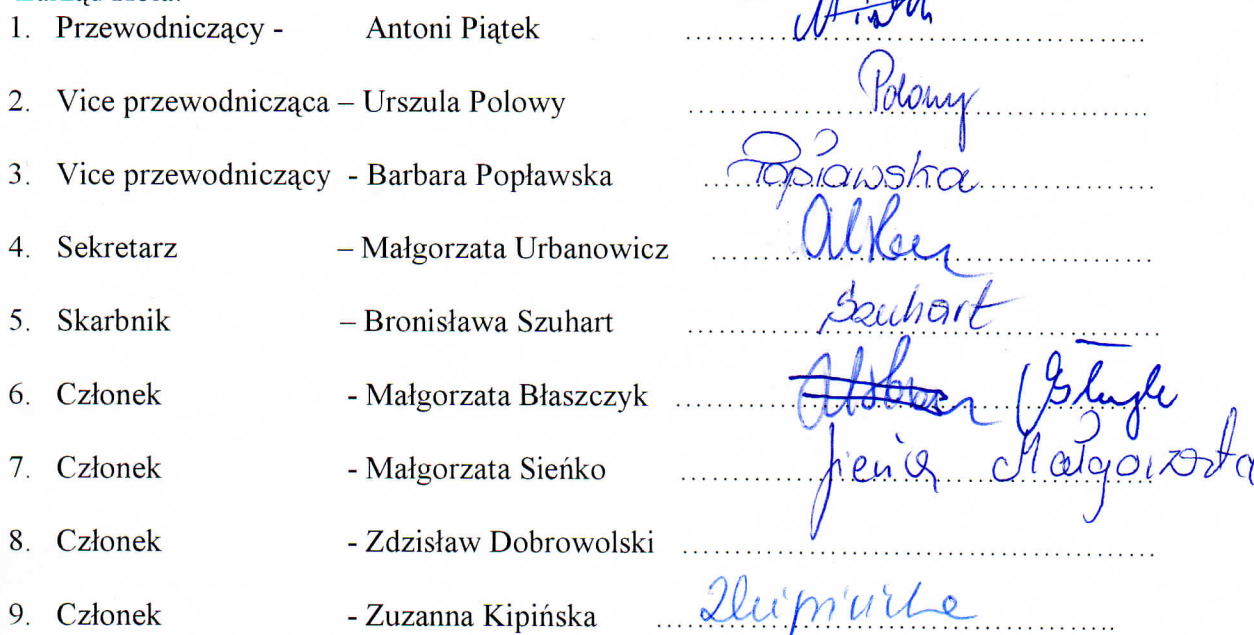 1. Przewodniczący - Antoni Piątek ........................
2. Vice przewodnicząca – Urszula Polowy Polowy
3. Vice przewodniczący - Barbara Popławska Popławska
4. Sekretarz – Małgorzata Urbanowicz
5. Skarbnik – Bronisława Szuhart Szuhart
6. Członek - Małgorzata Błaszczyk
7. Członek - Małgorzata Sieńko Małgorzata
8. Członek - Zdzisław Dobrowolski ........................
9. Członek - Zuzanna Kipińska